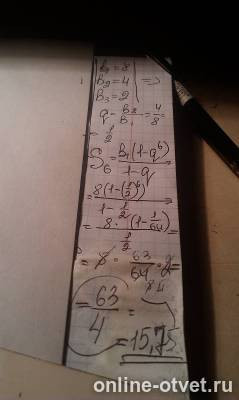 b₁ = 8
b₂ = 4 =>
b₃ = 2
q = b₂/b₁ = 4/8 =
= 1/2
S₆ = b₁(1-q⁶)/1-q =
= 8(1-(1/2)⁶)/1-1/2 =
= 8 · (1-1/64)/1/2 =
= 8 · 63/64 · 2 =
8 4
= 63/4 =
= 15,75
online-otvet.ru